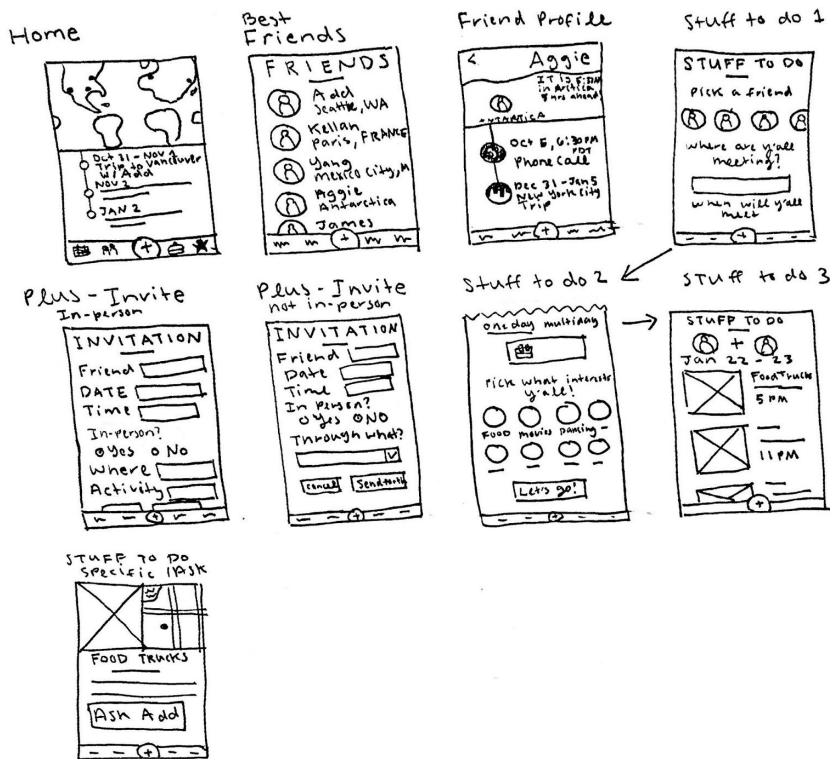 Home
Oct 31 - Nov 1
Trip to Vancouver
w/ Add
NOV 2
JAN 2
+
Best
Friends
FRIENDS
Add
Seattle, WA
Kellan
Paris, FRANCE
Yang
Mexico City, M
Aggie
Antarctica
James
+
Friend Profile
< Aggie
IT IS
in Arctica
hrs ahead
Oct 5, 6:30 PM
PDT
Phone Call
Dec 31 - Jan 5
New York City
Trip
+
Stuff to do 1
STUFF TO DO
Pick a friend
where are y'all
meeting?
when will y'all
meet
+
Plus - Invite
In-person
INVITATION
Friend
DATE
Time
In-person?
Yes No
Where
Activity
+
Plus - Invite
not in-person
INVITATION
Friend
Date
Time
In person?
Yes NO
Through what?
Cancel
+
Stuff to do 2
one day multiday
Pick what interests
y'all!
FOOD movies dancing
Let's go!
+
Stuff to do 3
STUFF TO DO
+
Jan 22 - 23
Food Trucks
5 PM
11 PM
+
STUFF TO DO
specific / ASK
FOOD TRUCKS
Ask Add
+